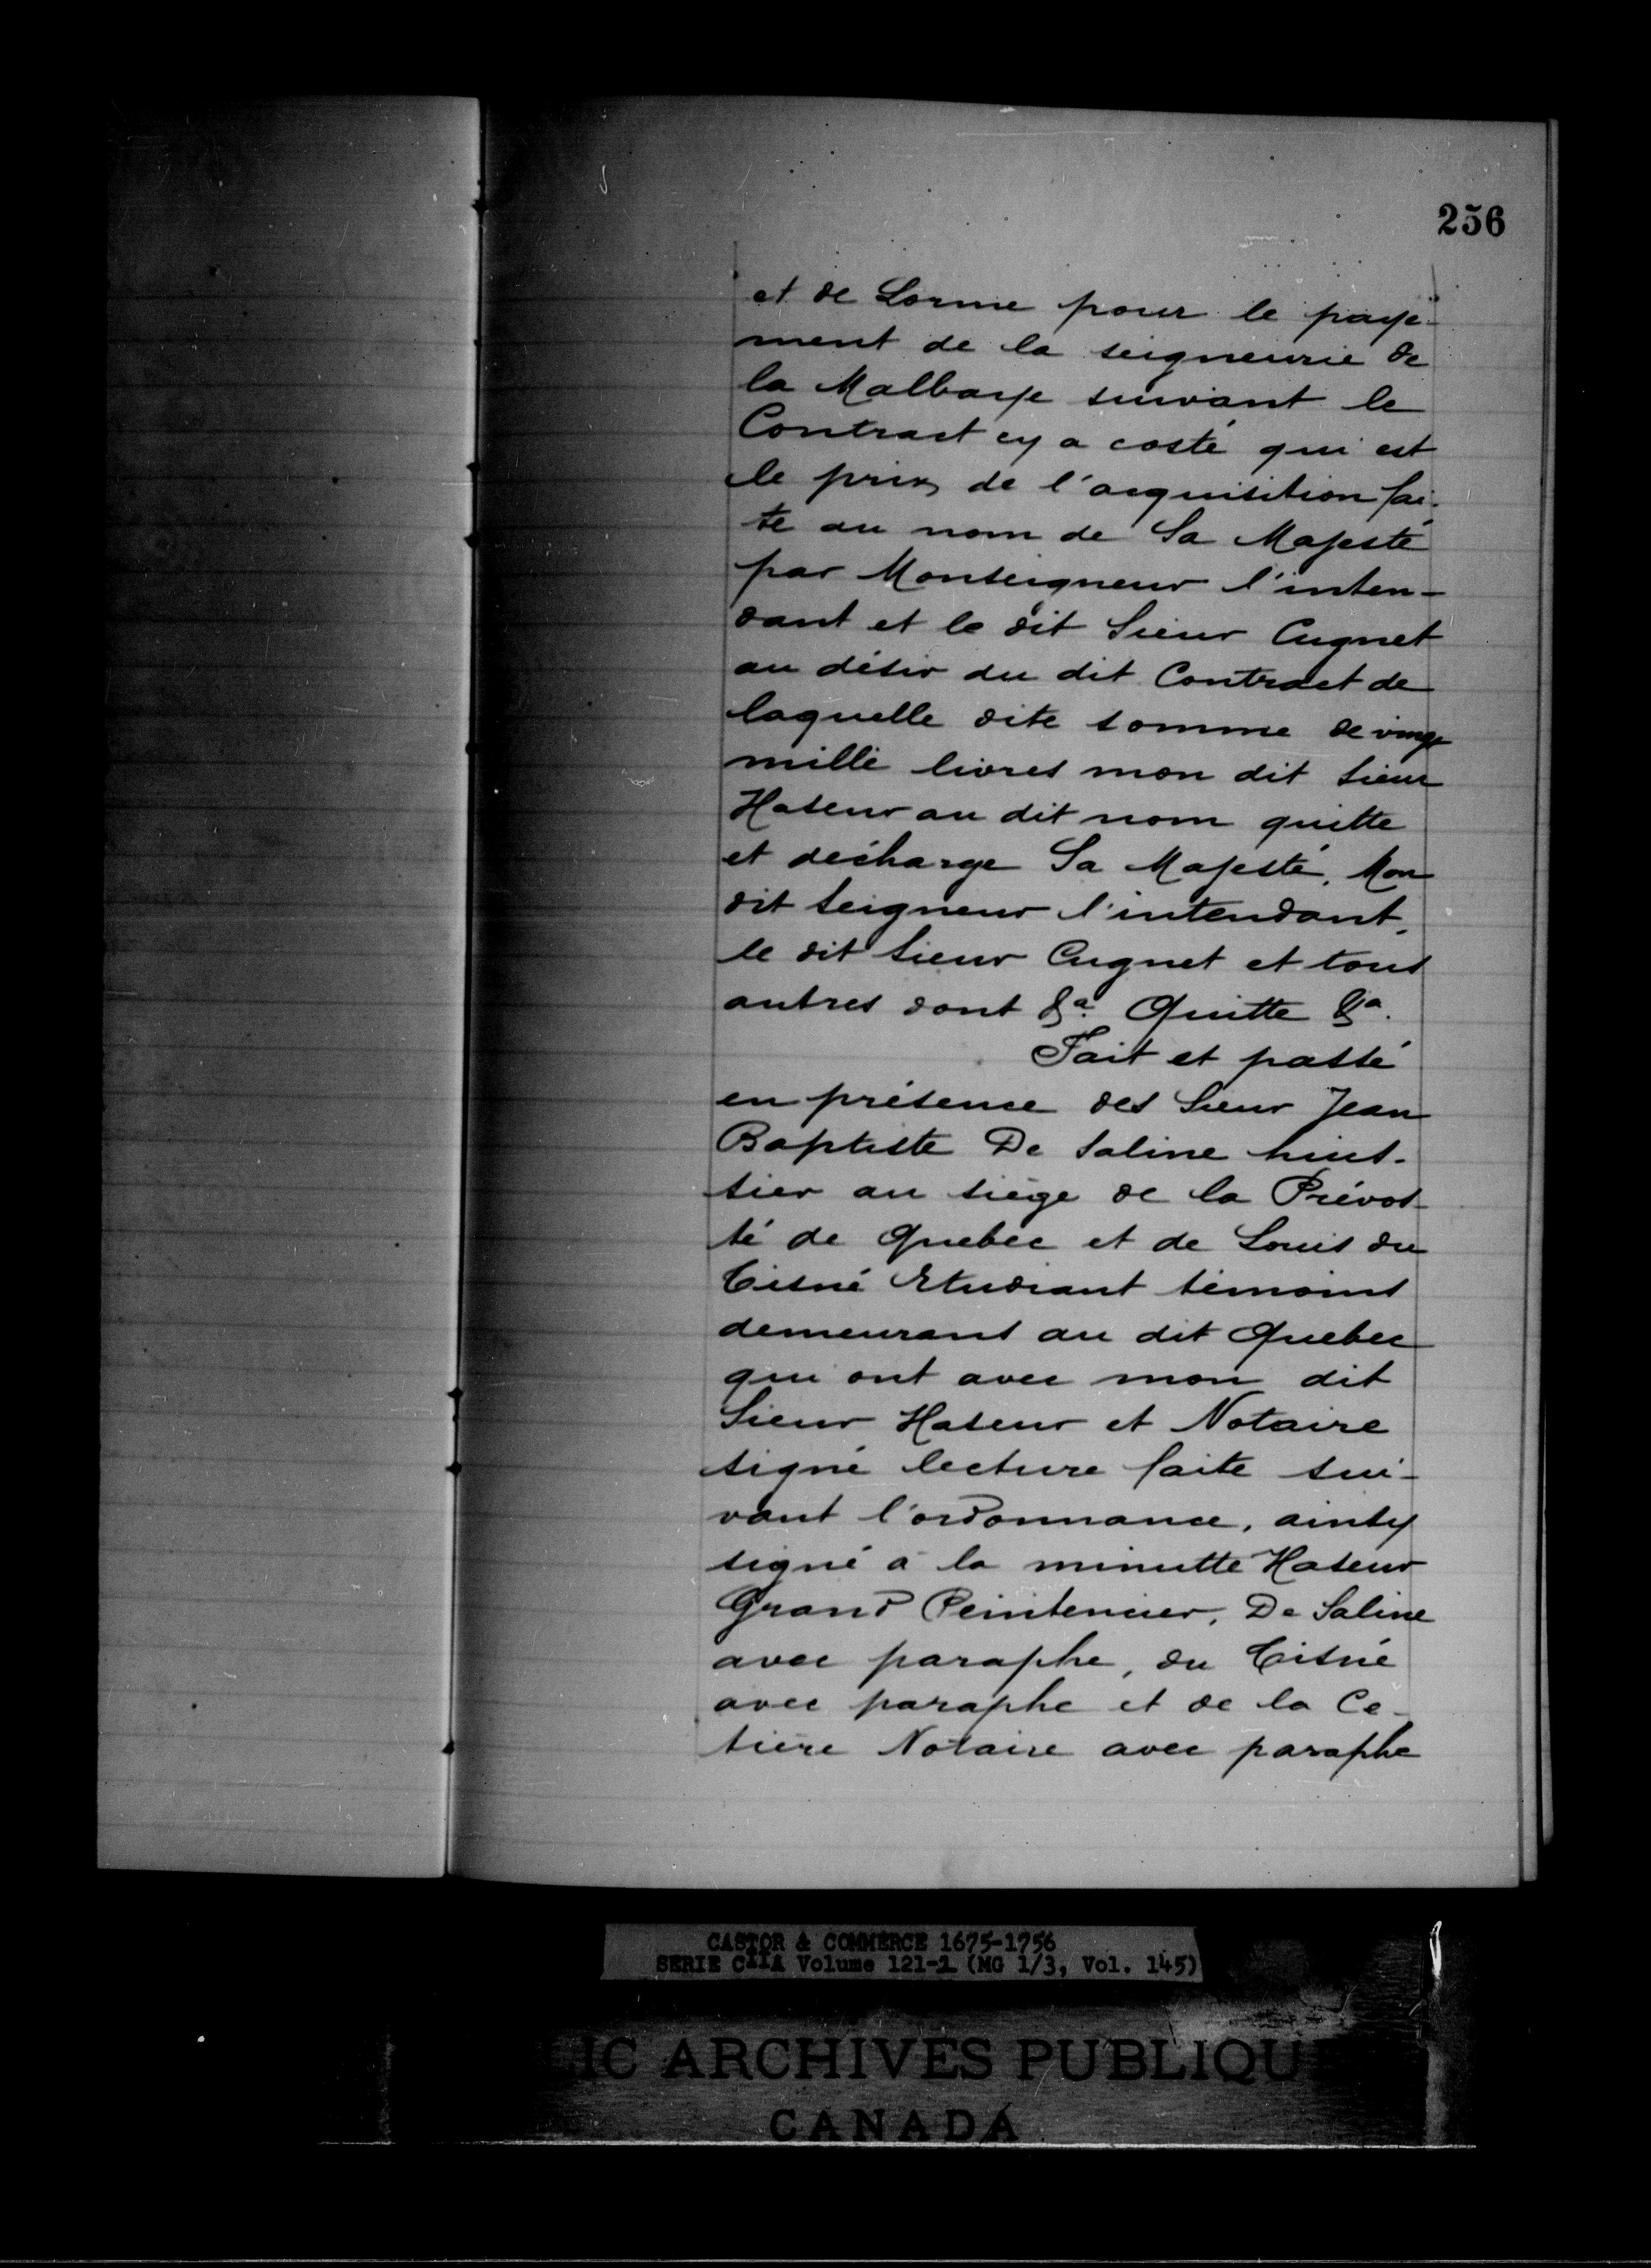 256
et de Lorme pour le paye-
ment de la seigneurie de
la Malbaye suivant le
Contract cy a costé qui est
le prix de l'acquisition fai-
te au nom de Sa Majesté
par Monseigneur l'inten-
dant et le dit Sieur Cugnet
au désir du dit Contract de
laquelle dite somme de vingt
mille livres mon dit Sieur
Haseur au dit nom quitte
et décharge Sa Majesté, Mon
dit Seigneur l'intendant,
le dit Sieur Cugnet et tous
autres dont &a. Quitte &a.
Fait et passé
en présence des Sieur Jean
Baptiste De Saline huis-
sier au siège de la Prévos-
té de Quebec et de Louis du
Tisné Etudiant témoins
demeurans au dit Quebec
qui ont avec mon dit
Sieur Haseur et Notaire
signé lecture faite sui-
vant l'ordonnance, ainsy
signé à la minutte Haseur
Grand Penitencier, De Saline
avec paraphe, du Tisné
avec paraphe et de la Ce-
tière Notaire avec paraphe
CASTOR & COMMERCE 1675-1756
SERIE C11A Volume 121-1 (MG 1/3, Vol. 145)
IC ARCHIVES PUBLIQU
CANADA